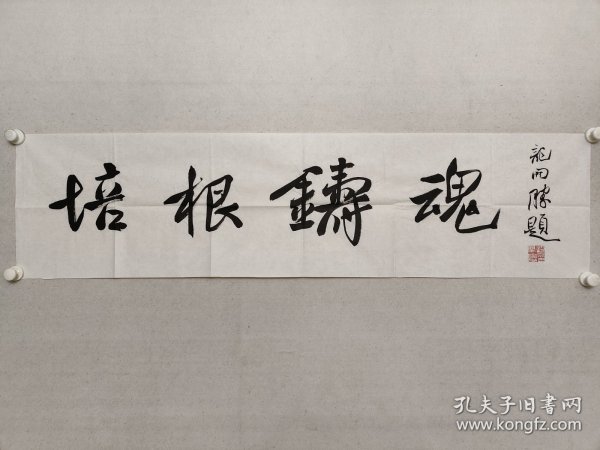 培根鑄魂
龍雨勝題
孔夫子旧書网
www.kongfz.com